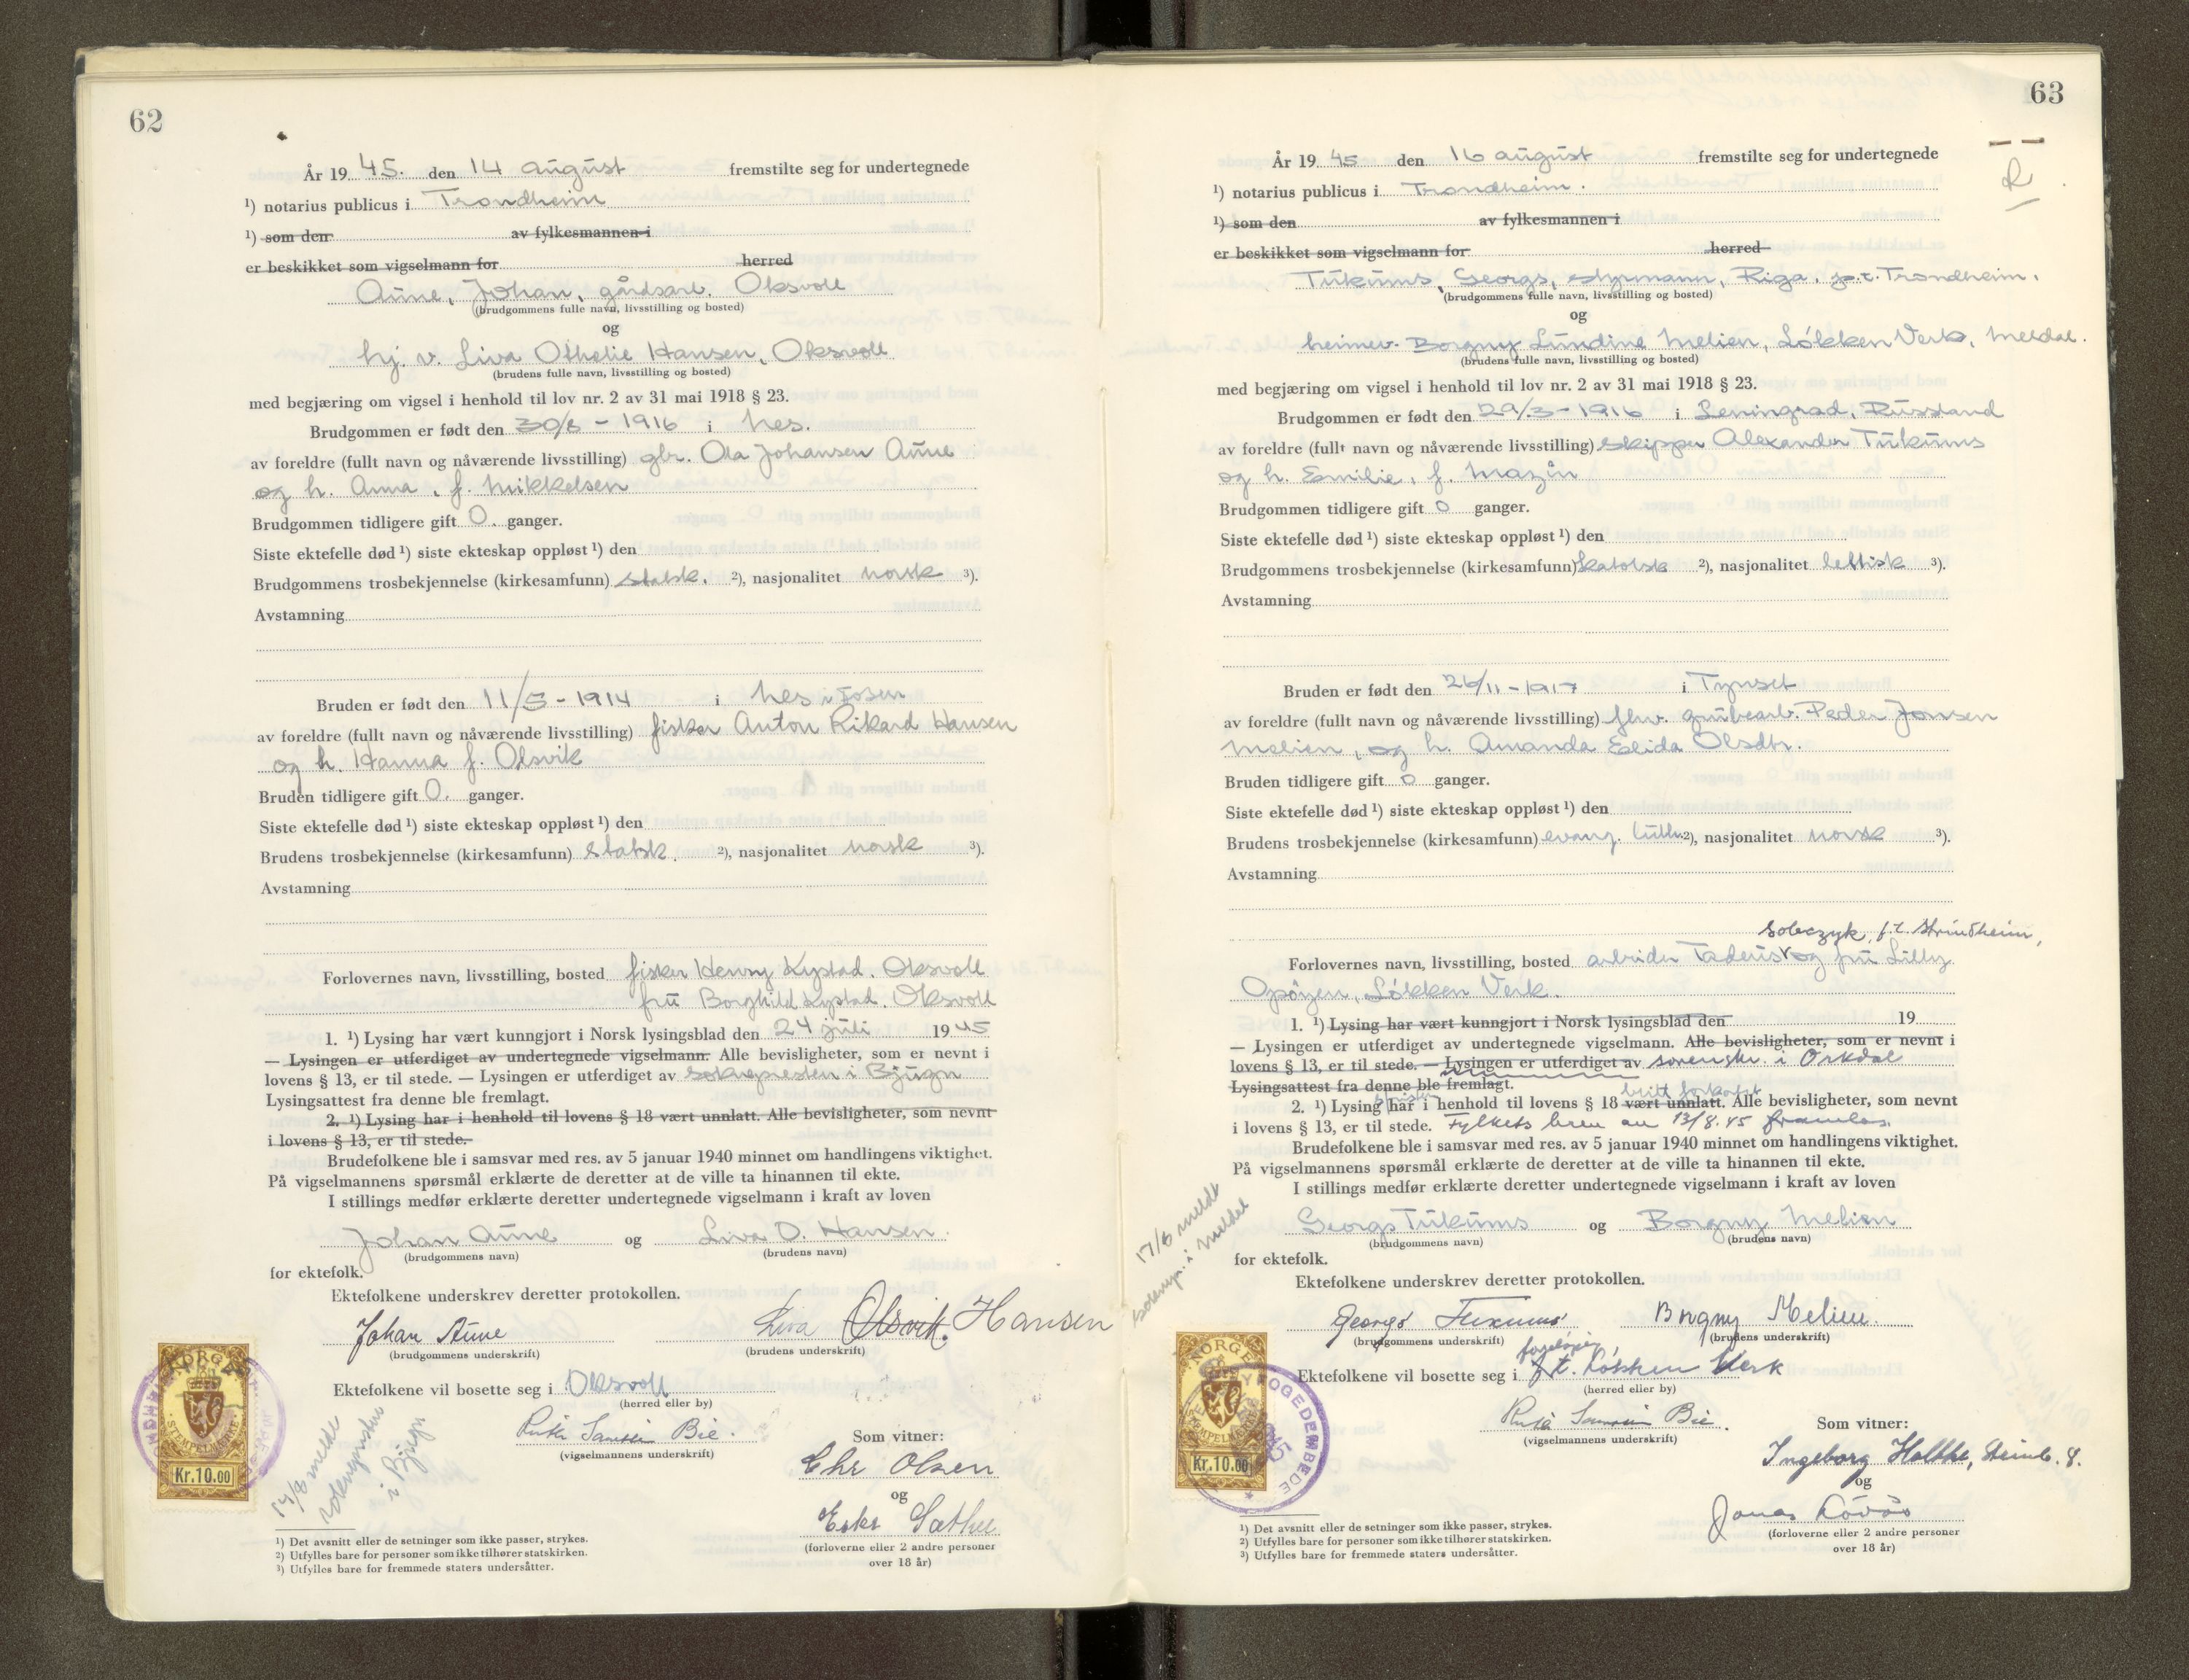 62
År 19 45. den 14 august fremstilte seg for undertegnede
¹) notarius publicus i Trondheim
¹) som den av fylkesmannen i
er beskikket som vigselmann for herred
Aune, Johan, gårdsarb. Oksvoll
(brudgommens fulle navn, livsstilling og bosted)
og
hj. v. Liva Othelie Hansen, Oksvoll
(brudens fulle navn, livsstilling og bosted)
med begjæring om vigsel i henhold til lov nr. 2 av 31 mai 1918 § 23.
Brudgommen er født den 30/8 - 1916 i Nes.
av foreldre (fullt navn og nåværende livsstilling) gbr. Ola Johansen Aune
og h. Anna, f. Mikkelsen
Brudgommen tidligere gift 0. ganger.
Siste ektefelle død ¹) siste ekteskap oppløst ¹) den
Brudgommens trosbekjennelse (kirkesamfunn) statsk. ²), nasjonalitet norsk ³).
Avstamning
Bruden er født den 11/5 - 1914 i Nes i Fosen
av foreldre (fullt navn og nåværende livsstilling) fisker Anton Rikard Hansen
og h. Hanna f. Olsvik
Bruden tidligere gift 0. ganger.
Siste ektefelle død ¹) siste ekteskap oppløst ¹) den
Brudens trosbekjennelse (kirkesamfunn) statsk. ²), nasjonalitet norsk ³).
Avstamning
Forlovernes navn, livsstilling, bosted fisker Henry Kystad. Oksvoll
fru Borghild Kystad. Oksvoll
1. ¹) Lysing har vært kunngjort i Norsk lysingsblad den 24 juli 19 45
— Lysingen er utferdiget av undertegnede vigselmann. Alle bevisligheter, som er nevnt i
lovens § 13, er til stede. — Lysingen er utferdiget av soknepresten i Bjugn
Lysingsattest fra denne ble fremlagt.
2. ¹) Lysing har i henhold til lovens § 18 vært unnlatt. Alle bevisligheter, som nevnt
i lovens § 13, er til stede.
Brudefolkene ble i samsvar med res. av 5 januar 1940 minnet om handlingens viktighet.
På vigselmannens spørsmål erklærte de deretter at de ville ta hinannen til ekte.
I stillings medfør erklærte deretter undertegnede vigselmann i kraft av loven
Johan Aune og Liva O. Hansen.
(brudgommens navn) (brudens navn)
for ektefolk.
Ektefolkene underskrev deretter protokollen.
Johan Aune Liva Olsvik. Hansen
(brudgommens underskrift) (brudens underskrift)
Ektefolkene vil bosette seg i Oksvoll
(herred eller by)
Bie.
(vigselmannens underskrift)
Som vitner:
Chr Olsen
og
Sæther
(forloverne eller 2 andre personer
over 18 år)
NORGE
STEMPELMERKE
Kr.10.00
meldt
soknepresten
i Bjugn
¹) Det avsnitt eller de setninger som ikke passer, strykes.
²) Utfylles bare for personer som ikke tilhører statskirken.
³) Utfylles bare for fremmede staters undersåtter.
63
År 19 45 den 16 august fremstilte seg for undertegnede
¹) notarius publicus i Trondheim.
¹) som den av fylkesmannen i
er beskikket som vigselmann for herred
Tukums, Georgs, styrmann, Riga. p.t. Trondheim.
(brudgommens fulle navn, livsstilling og bosted)
og
heimev. Borgny Lundine Melien, Løkken Verk, Meldal.
(brudens fulle navn, livsstilling og bosted)
med begjæring om vigsel i henhold til lov nr. 2 av 31 mai 1918 § 23.
Brudgommen er født den 29/3 - 1916 i Leningrad, Russland
av foreldre (fullt navn og nåværende livsstilling) skipper Alexander Tukums
og h. Emilie, f. Mazin
Brudgommen tidligere gift 0 ganger.
Siste ektefelle død ¹) siste ekteskap oppløst ¹) den
Brudgommens trosbekjennelse (kirkesamfunn) katolsk ²), nasjonalitet lettisk ³).
Avstamning
Bruden er født den 26/11 - 1917 i Tynset
av foreldre (fullt navn og nåværende livsstilling) fhv. grubearb. Peder Jonsen
Melien, og h. Amanda Elida Olsdtr.
Bruden tidligere gift 0 ganger.
Siste ektefelle død ¹) siste ekteskap oppløst ¹) den
Brudens trosbekjennelse (kirkesamfunn) evang. luth. ²), nasjonalitet norsk ³).
Avstamning
Sobczyk, p.t. Strindheim,
Forlovernes navn, livsstilling, bosted arbeider Tadeus og fru Lilly
Opøyen, Løkken Verk.
1. ¹) Lysing har vært kunngjort i Norsk lysingsblad den 19
— Lysingen er utferdiget av undertegnede vigselmann. Alle bevisligheter, som er nevnt i
lovens § 13, er til stede. — Lysingen er utferdiget av sorenskr. i Orkdal
Lysingsattest fra denne ble fremlagt.
blitt forkortet
2. ¹) Lysing har i henhold til lovens § 18 vært unnlatt. Alle bevisligheter, som nevnt
i lovens § 13, er til stede. Fylkets brev av 13/8.45 framlas.
Brudefolkene ble i samsvar med res. av 5 januar 1940 minnet om handlingens viktighet.
På vigselmannens spørsmål erklærte de deretter at de ville ta hinannen til ekte.
I stillings medfør erklærte deretter undertegnede vigselmann i kraft av loven
Georgs Tukums og Borgny Melien
(brudgommens navn) (brudens navn)
for ektefolk.
Ektefolkene underskrev deretter protokollen.
Georgs Tukums Borgny Melien.
(brudgommens underskrift) (brudens underskrift)
foreløpig
Ektefolkene vil bosette seg i p.t. Løkken Verk
(herred eller by)
Bie.
(vigselmannens underskrift)
Som vitner:
Ingeborg Holthe, Steinb. 8.
og
Jonas Løvås
(forloverne eller 2 andre personer
over 18 år)
17/8 meldt
soknepr. i Meldal
NORGE
STEMPELMERKE
Kr.10.00
BYFOGEDEMBEDE
¹) Det avsnitt eller de setninger som ikke passer, strykes.
²) Utfylles bare for personer som ikke tilhører statskirken.
³) Utfylles bare for fremmede staters undersåtter.